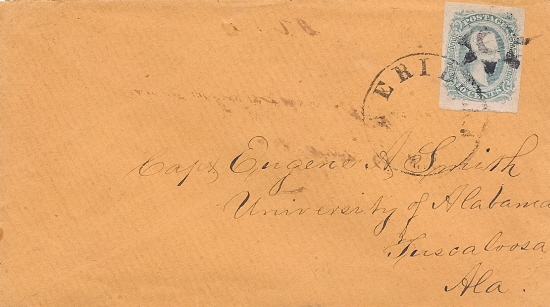 POSTAGE
CENTS
ERI
Capt Eugene A Smith
University of Alabama
Tuscaloosa
Ala.